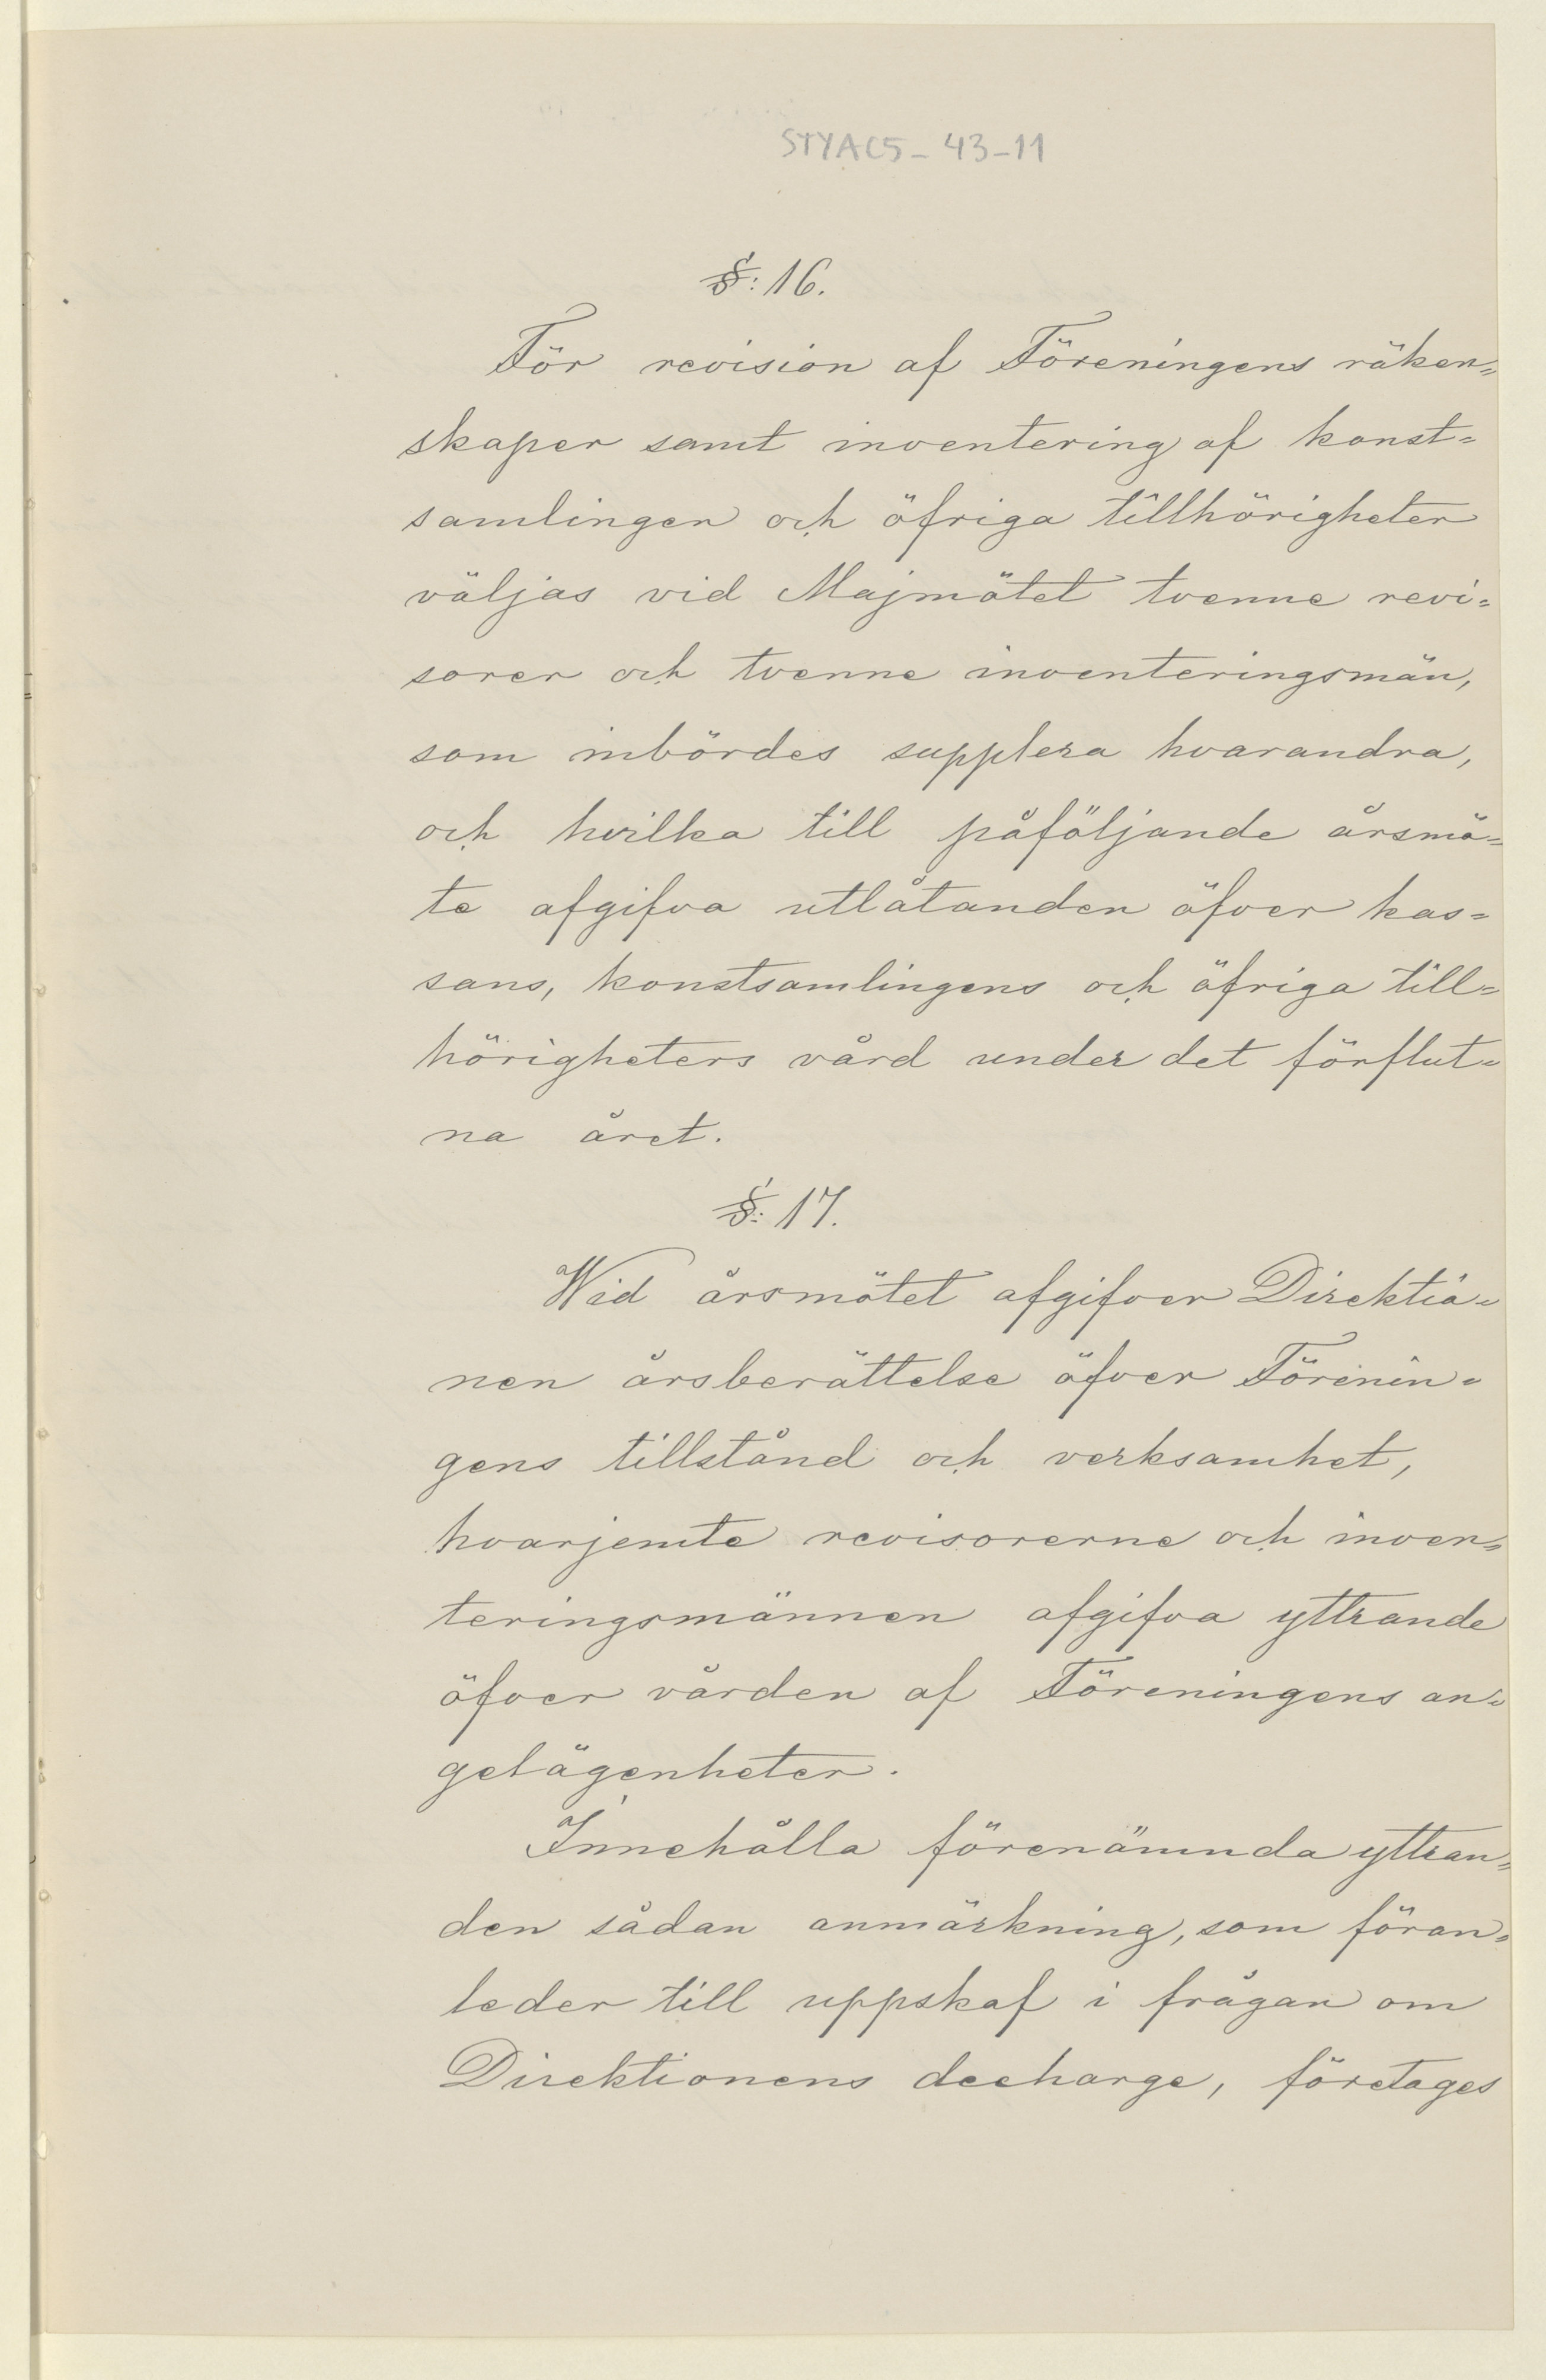 STYAC5-43-11
§: 16.
För revision af Föreningens räken=
skaper samt inventering af konst=
samlingen och öfriga tillhörigheter
väljas vid Majmötet tvenne revi=
sorer och tvenne inventeringsmän,
som inbördes supplera hvarandra,
och hvilka till påföljande årsmö=
te afgifva utlåtanden öfver kas=
sans, konstsamlingens och öfriga till=
hörigheters vård under det förflut=
na året.
§: 17.
Wid årsmötet afgifver Direktio=
nen årsberättelse öfver Förenin=
gens tillstånd och verksamhet,
hvarjemte revisorerne och inven=
teringsmännen afgifva yttrande
öfver vården af Föreningens an=
gelägenheter.
Innehålla förenämnda yttran=
den sådan anmärkning, som föran=
leder till uppskof i frågan om
Direktionens decharge, företages